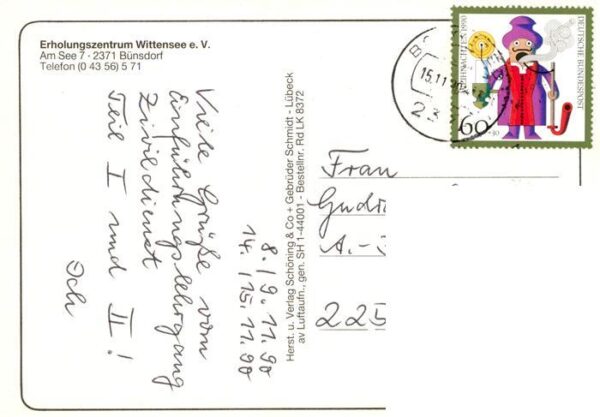 Erholungszentrum Wittensee e. V.
Am See 7 · 2371 Bünsdorf
Telefon (0 43 56) 5 71
Viele Grüße vom
Einführungslehrgang
Zivildienst
Teil I und II!
Och
8./9.11.90
14./15.11.90
Herst. u. Verlag Schöning & Co + Gebrüder Schmidt - Lübeck
av Luftaufn., gen. SH 1-44001 - Bestellnr. Rd LK 8372
WEIHNACHTEN 1990
DEUTSCHE BUNDESPOST
60
+30
15.11.90
23
Frau
Gudr
A.-
225